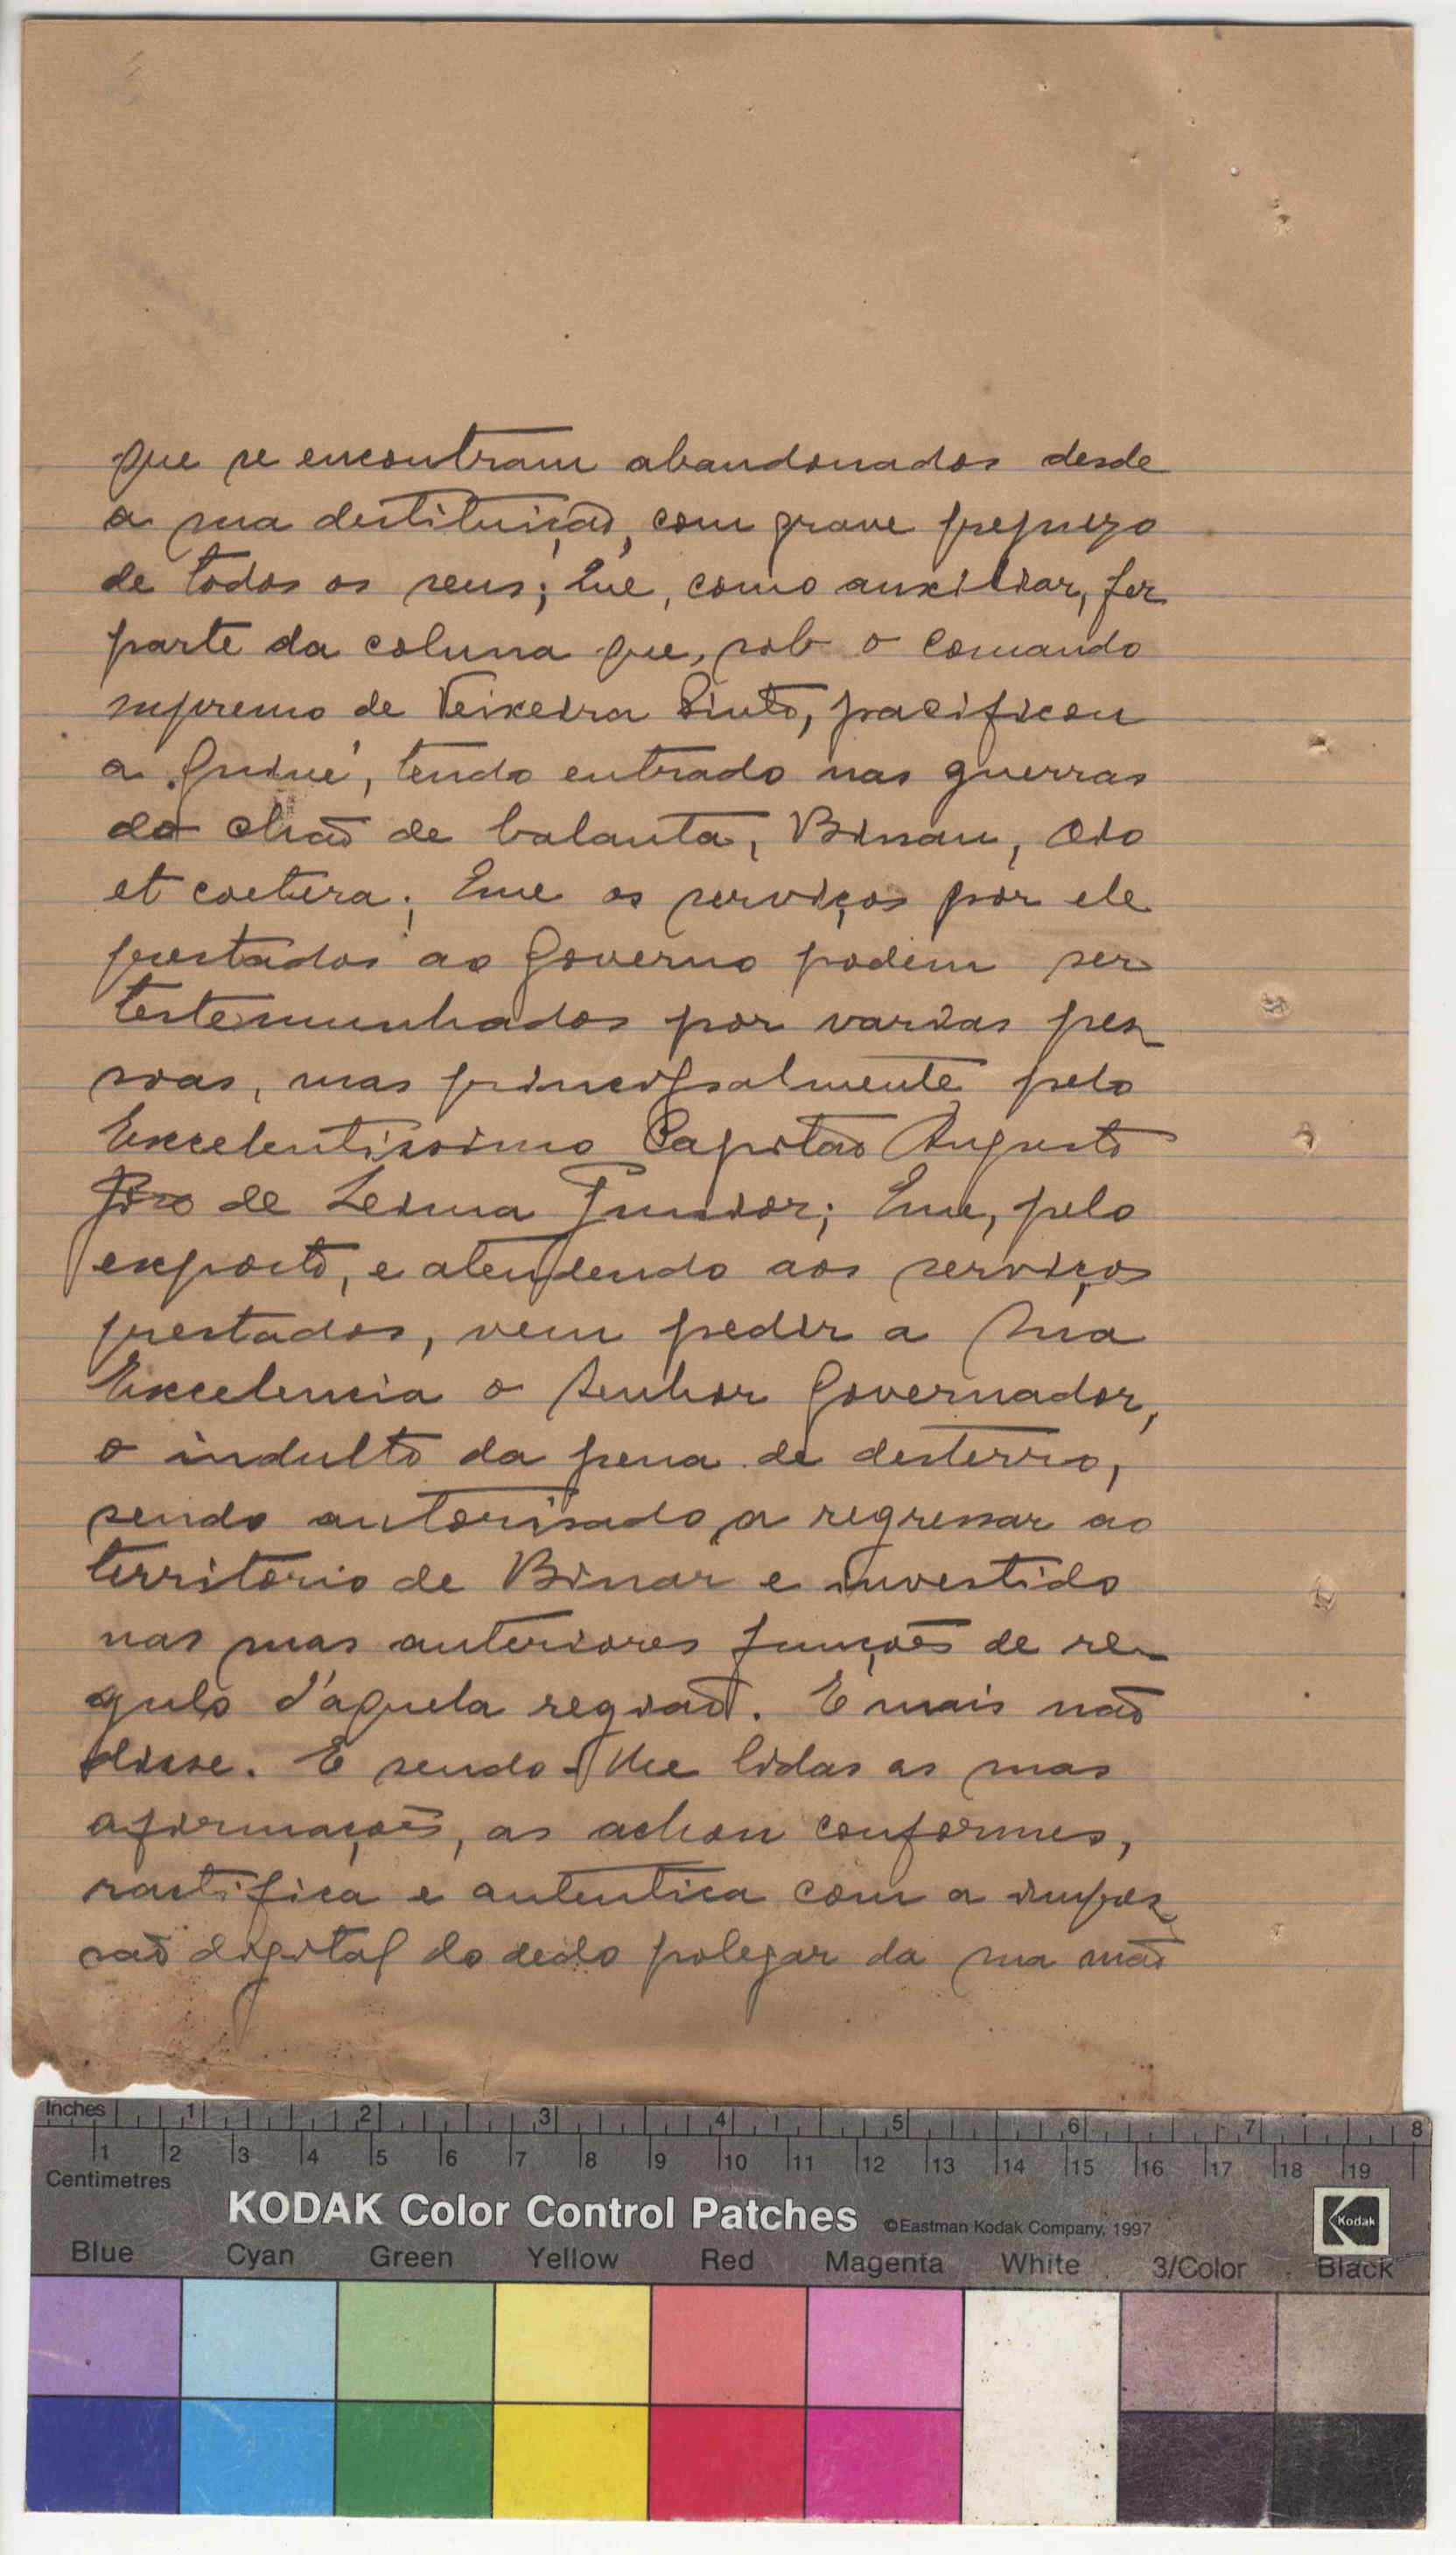 que se encontram abandonados desde
a sua destituição, com grave prejuizo
de todos os seus; Que, como auxiliar, fez
parte da coluna que, sob o comando
supremo de Teixeira Pinto, pacificou
a Guiné, tendo entrado nas guerras
do chão de balanta, Bissau, Oio
et coetera; Que os serviços por ele
prestados ao Governo podem ser
testemunhados por varias pes-
soas, mas principalmente pelo
Excelentissimo Capitão Augusto
de Leima Junior; Que, pelo
exposto, e atendendo aos serviços
prestados, vem pedir a Sua
Excelencia o Senhor Governador,
o indulto da pena de desterro,
sendo autorisado a regressar ao
territorio de Binar e investido
nas suas anteriores funções de re-
gulo d'aquela região. E mais não
disse. E sendo-lhe lidas as suas
afirmações, as achou conformes,
ractifica e autentica com a impres-
são digital do dedo polegar da sua mão
Inches 1 2 3 4 5 6 7 8
1 2 3 4 5 6 7 8 9 10 11 12 13 14 15 16 17 18 19
Centimetres
KODAK Color Control Patches ©Eastman Kodak Company, 1997 Kodak
Blue Cyan Green Yellow Red Magenta White 3/Color Black